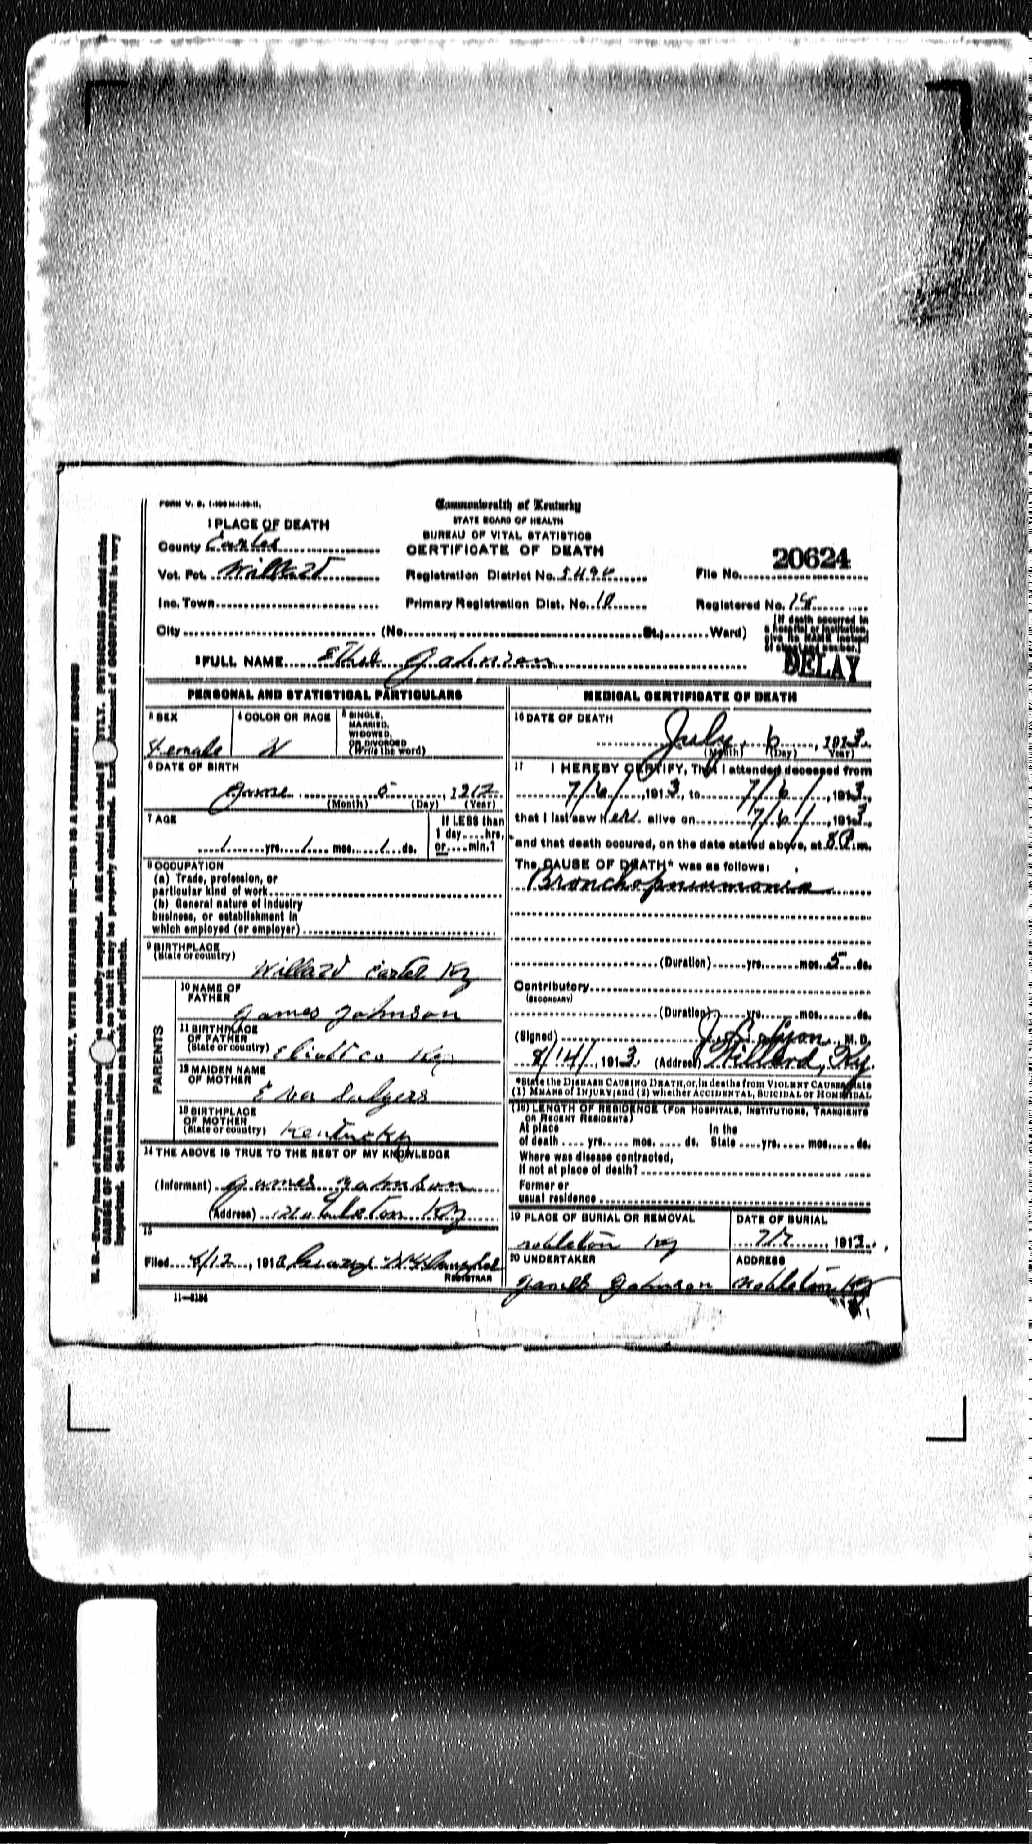 FORM V. S.
Commonwealth of Kentucky
STATE BOARD OF HEALTH
BUREAU OF VITAL STATISTICS
CERTIFICATE OF DEATH
1 PLACE OF DEATH
County Carter
Vot. Pct. Willard
Inc. Town
City (No. St.; Ward)
Registration District No.
Primary Registration Dist. No. 10
20624
File No.
Registered No.
[If death occurred in
a hospital or institution,
give its NAME instead
of street and number.]
DELAY
2 FULL NAME Ethel Johnson
PERSONAL AND STATISTICAL PARTICULARS
3 SEX
Female
4 COLOR OR RACE
W
5 SINGLE,
MARRIED,
WIDOWED,
OR DIVORCED
(Write the word)
6 DATE OF BIRTH
June 5, 1912
(Month) (Day) (Year)
7 AGE
1 yrs. 1 mos. 1 ds.
If LESS than
1 day hrs.
or min.?
8 OCCUPATION
(a) Trade, profession, or
particular kind of work
(b) General nature of industry
business, or establishment in
which employed (or employer)
9 BIRTHPLACE
(State or country)
Willard Carter Ky
PARENTS
10 NAME OF
FATHER
James Johnson
11 BIRTHPLACE
OF FATHER
(State or country) Elliott co Ky
12 MAIDEN NAME
OF MOTHER
Eva Salyers
13 BIRTHPLACE
OF MOTHER
(State or country) Kentucky
14 THE ABOVE IS TRUE TO THE BEST OF MY KNOWLEDGE
(Informant) James Johnson
(Address) Ky
15
Filed /12, 1913 George
REGISTRAR
11-3184
MEDICAL CERTIFICATE OF DEATH
16 DATE OF DEATH
July 6, 1913
(Month) (Day) (Year)
17 I HEREBY CERTIFY, That I attended deceased from
7/6/, 1913, to 7/6/, 1913,
that I last saw her alive on 7/6/, 1913,
and that death occured, on the date stated above, at 8 P.m.
The CAUSE OF DEATH* was as follows:
Bronchopneumonia
(Duration) yrs. mos. 5 ds.
Contributory
(SECONDARY)
(Duration) yrs. mos. ds.
(Signed) Lyon, M. D.
/14/, 1913. (Address) Willard, Ky.
*State the DISEASE CAUSING DEATH, or, in deaths from VIOLENT CAUSES, state
(1) MEANS OF INJURY; and (2) whether ACCIDENTAL, SUICIDAL or HOMICIDAL
(18) LENGTH OF RESIDENCE (FOR HOSPITALS, INSTITUTIONS, TRANSIENTS
OR RECENT RESIDENTS)
At place In the
of death yrs. mos. ds. State yrs. mos. ds.
Where was disease contracted,
If not at place of death?
Former or
usual residence
19 PLACE OF BURIAL OR REMOVAL
Nobleton Ky
DATE OF BURIAL
7/7, 1913
20 UNDERTAKER
James Johnson
ADDRESS
Nobleton Ky
WRITE PLAINLY, WITH UNFADING INK—THIS IS A PERMANENT RECORD
N. B.—Every item of information should be carefully supplied. AGE should be stated EXACTLY. PHYSICIANS should state
CAUSE OF DEATH in plain terms, so that it may be properly classified. Exact statement of OCCUPATION is very
important. See instructions on back of certificate.